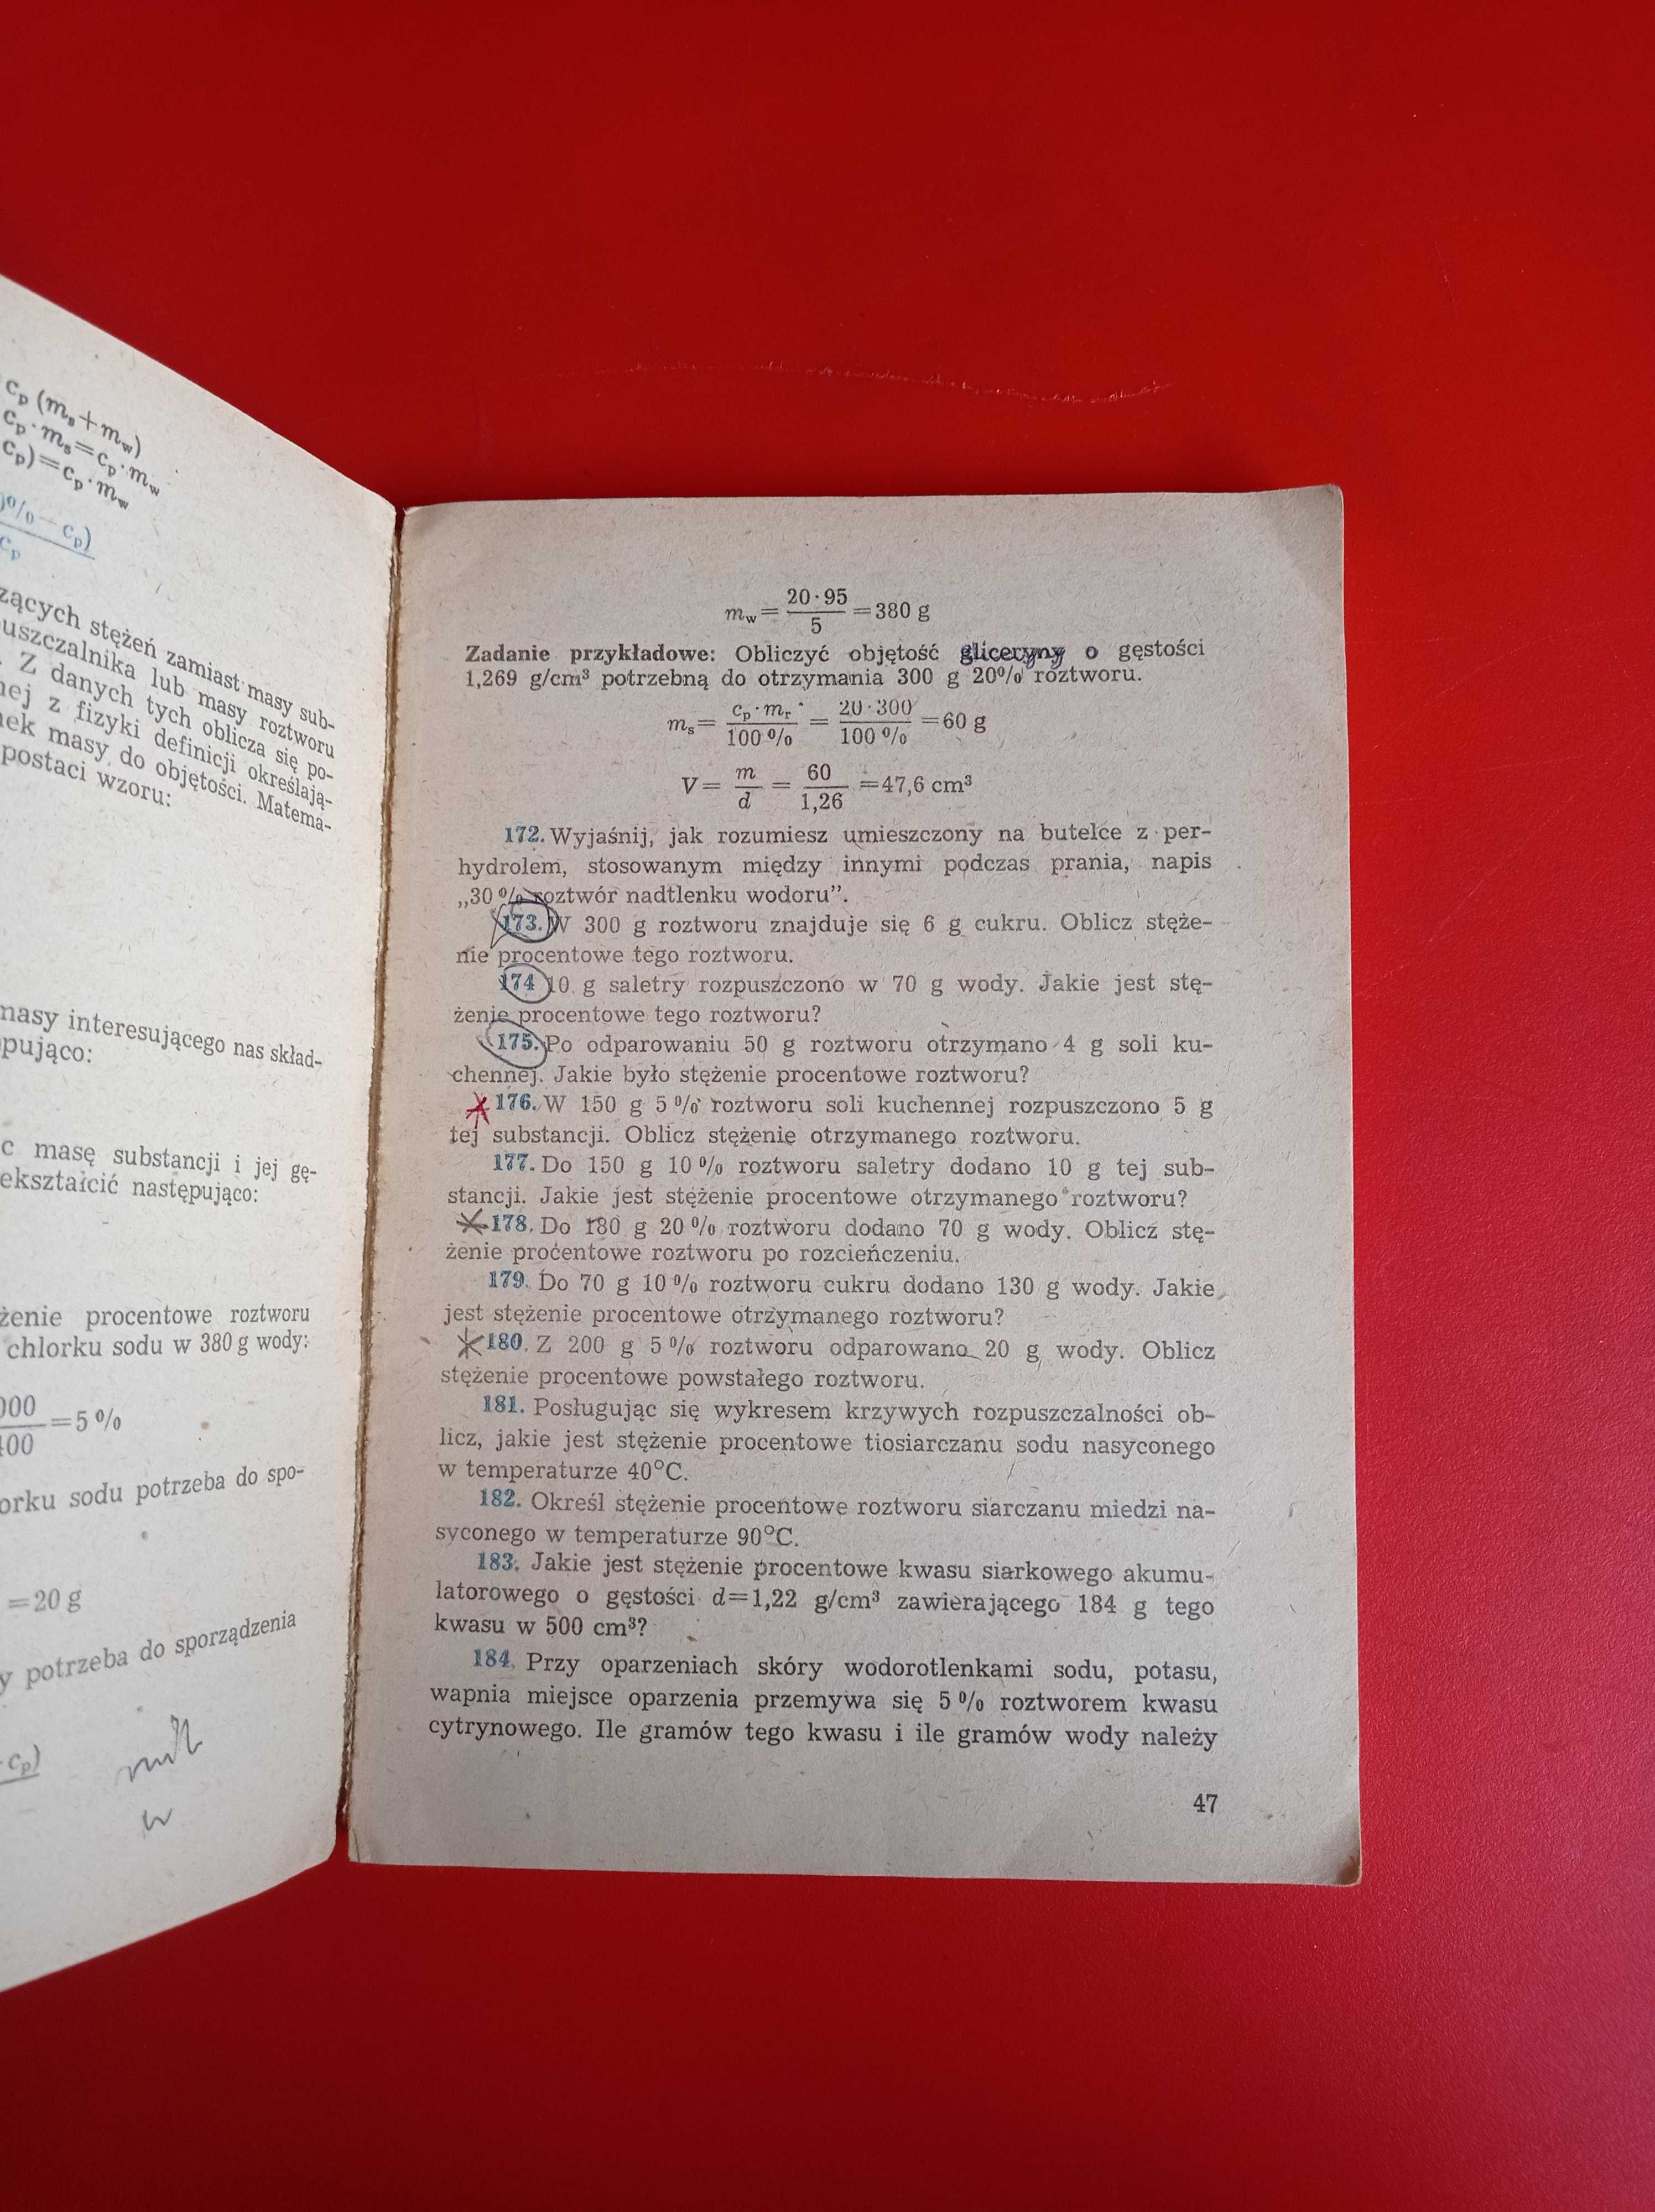 c_p (m_s + m_w)
c_p · m_s = c_p · m_w
c_p) = c_p · m_w
0% — c_p)
c_p
zących stężeń zamiast masy sub-
uszczalnika lub masy roztworu
. Z danych tych oblicza się po-
nej z fizyki definicji określają-
nek masy do objętości. Matema-
postaci wzoru:
masy interesującego nas skład-
pująco:
c masę substancji i jej gę-
ekształcić następująco:
żenie procentowe roztworu
chlorku sodu w 380 g wody:
000
400
= 5 %
orku sodu potrzeba do spo-
= 20 g
y potrzeba do sporządzenia
c_p)
m_w = 20 · 95 / 5 = 380 g
Zadanie przykładowe: Obliczyć objętość gliceryny o gęstości
1,269 g/cm³ potrzebną do otrzymania 300 g 20% roztworu.
m_s = c_p · m_r / 100 % = 20 · 300 / 100 % = 60 g
V = m / d = 60 / 1,26 = 47,6 cm³
172. Wyjaśnij, jak rozumiesz umieszczony na butelce z per-
hydrolem, stosowanym między innymi podczas prania, napis
„30 % roztwór nadtlenku wodoru”.
173. W 300 g roztworu znajduje się 6 g cukru. Oblicz stęże-
nie procentowe tego roztworu.
174 10 g saletry rozpuszczono w 70 g wody. Jakie jest stę-
żenie procentowe tego roztworu?
175. Po odparowaniu 50 g roztworu otrzymano 4 g soli ku-
chennej. Jakie było stężenie procentowe roztworu?
176. W 150 g 5 % roztworu soli kuchennej rozpuszczono 5 g
tej substancji. Oblicz stężenie otrzymanego roztworu.
177. Do 150 g 10 % roztworu saletry dodano 10 g tej sub-
stancji. Jakie jest stężenie procentowe otrzymanego roztworu?
178. Do 180 g 20 % roztworu dodano 70 g wody. Oblicz stę-
żenie procentowe roztworu po rozcieńczeniu.
179. Do 70 g 10 % roztworu cukru dodano 130 g wody. Jakie
jest stężenie procentowe otrzymanego roztworu?
180. Z 200 g 5 % roztworu odparowano 20 g wody. Oblicz
stężenie procentowe powstałego roztworu.
181. Posługując się wykresem krzywych rozpuszczalności ob-
licz, jakie jest stężenie procentowe tiosiarczanu sodu nasyconego
w temperaturze 40°C.
182. Określ stężenie procentowe roztworu siarczanu miedzi na-
syconego w temperaturze 90°C.
183. Jakie jest stężenie procentowe kwasu siarkowego akumu-
latorowego o gęstości d = 1,22 g/cm³ zawierającego 184 g tego
kwasu w 500 cm³?
184. Przy oparzeniach skóry wodorotlenkami sodu, potasu,
wapnia miejsce oparzenia przemywa się 5 % roztworem kwasu
cytrynowego. Ile gramów tego kwasu i ile gramów wody należy
47